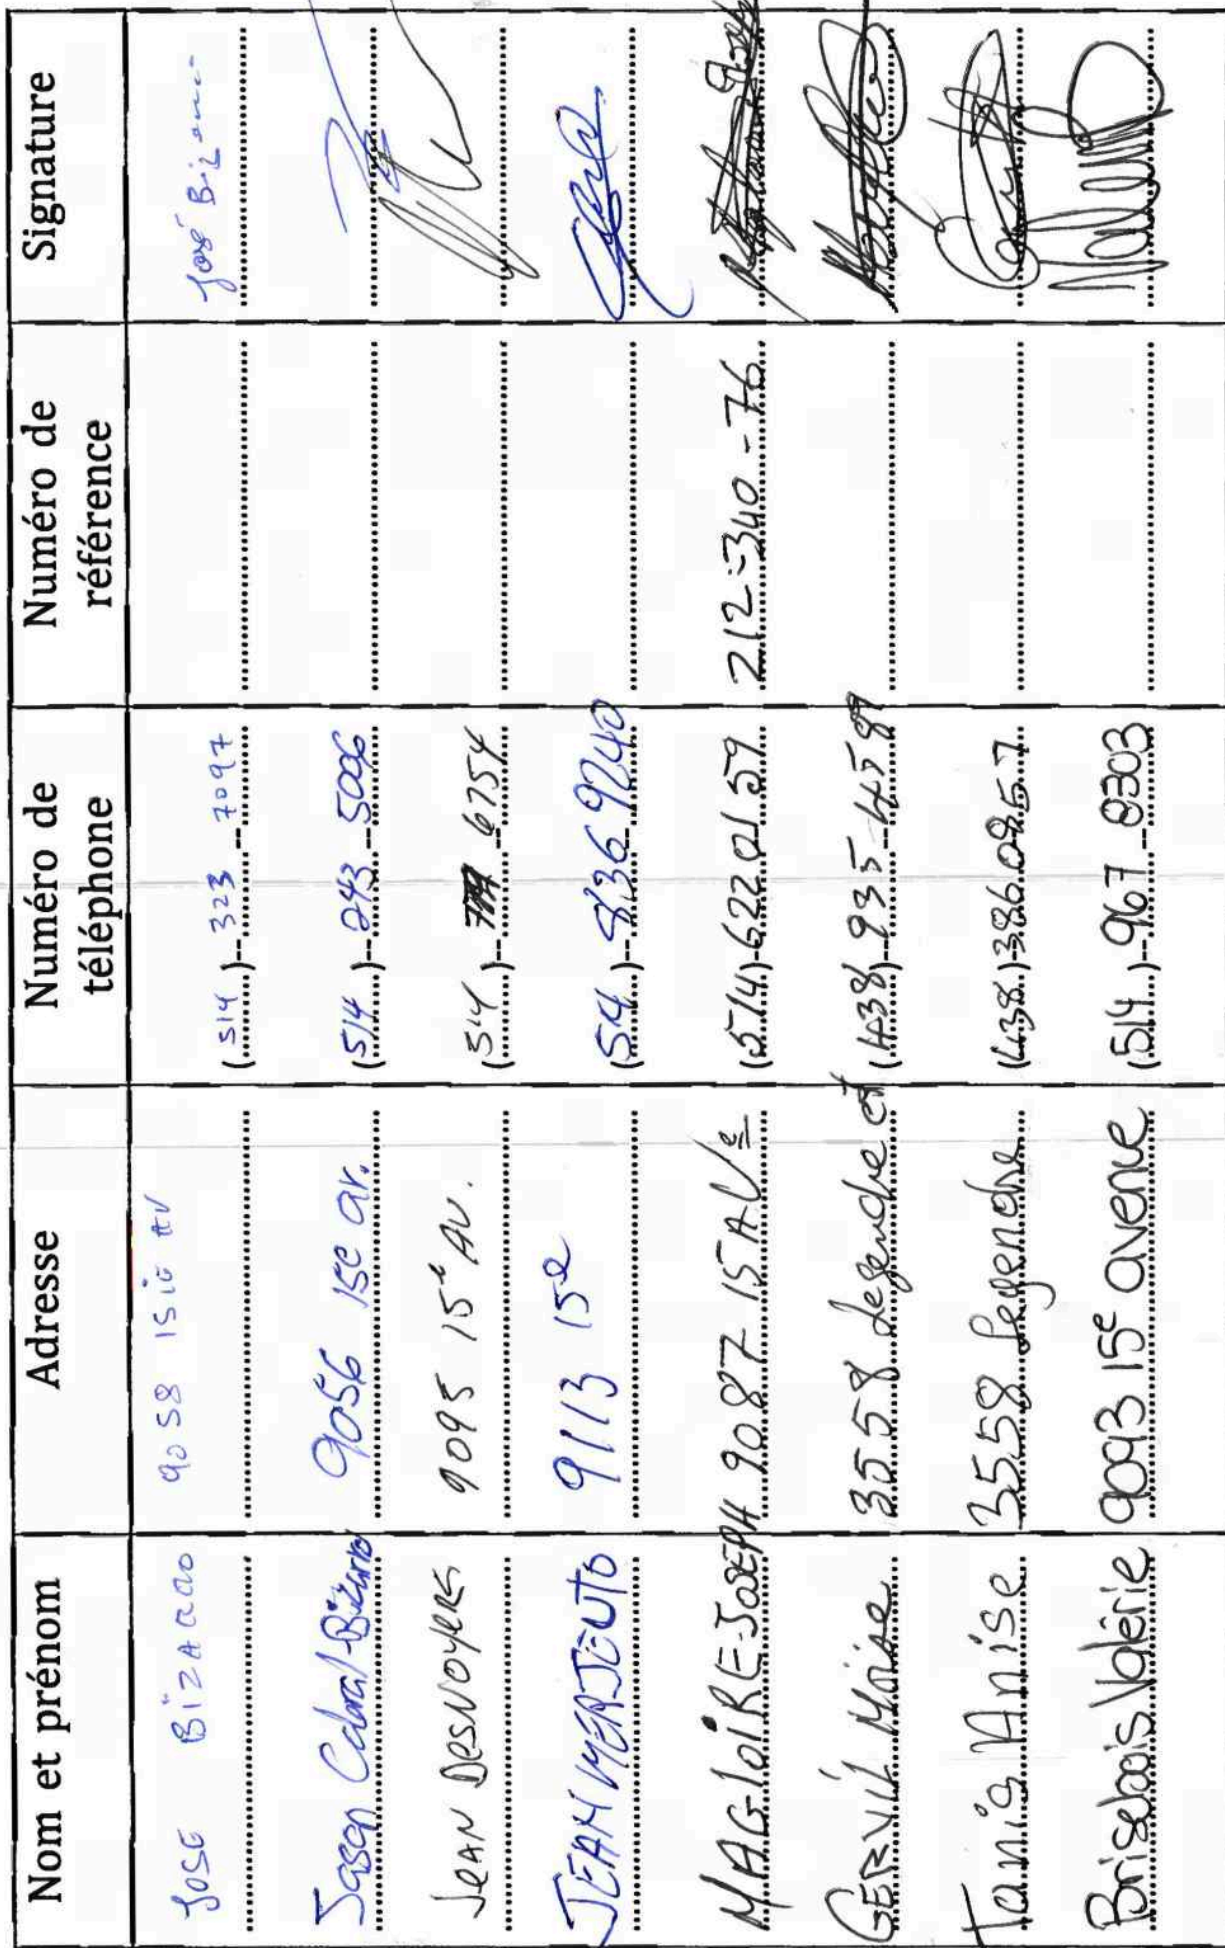 Nom et prénom Adresse Numéro de téléphone Numéro de référence Signature
José BizARRO 9058 15iè AV (514) 323 7097 José Bizarro
Jason Cabral-Bizarro 9056 15e av. (514) 243-5006
JEAN DESNOYERS 9095 15e AV. (514) 6754
JEAN 9113 15e (514) 836 9240
MAGLOIRE-JOSEPH 9087 15 AVe (514) 622 0159 212-340-76
GERVIL Moise 3558 Legendre est (438) 935-4589
Tanis Anise 3558 Legendre (438) 386 0857
Brisebois Valérie 9093 15e avenue (514) 967-8303